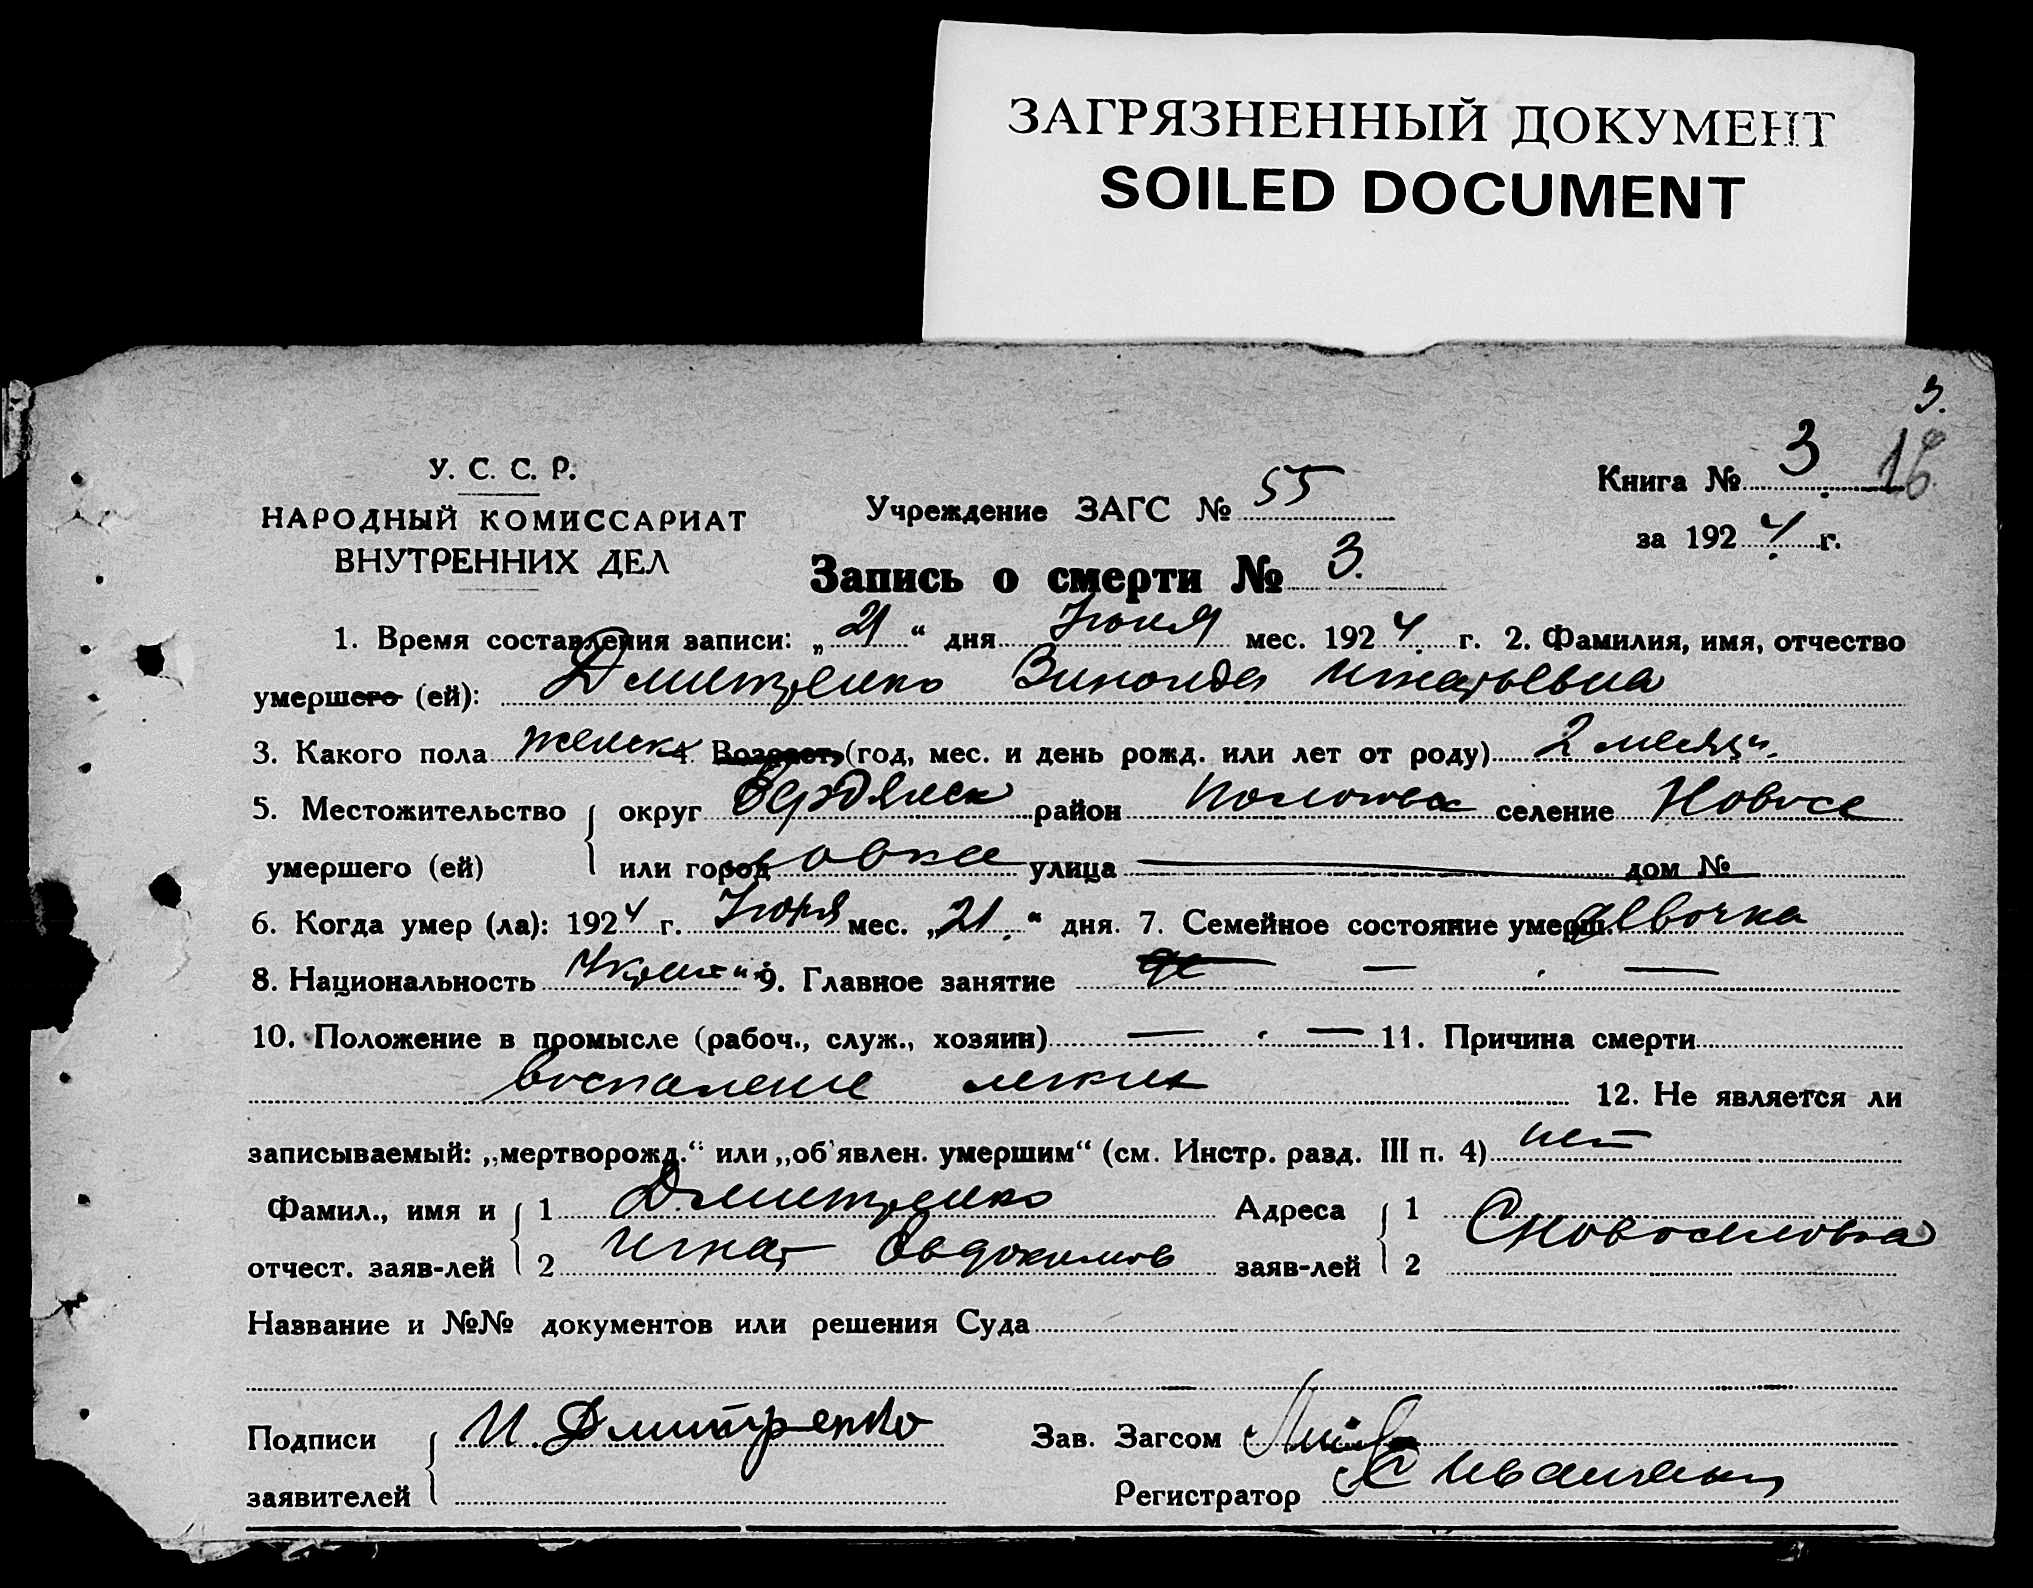 ЗАГРЯЗНЕННЫЙ ДОКУМЕНТ
SOILED DOCUMENT
3.
У. С. С. Р.
НАРОДНЫЙ КОМИССАРИАТ
ВНУТРЕННИХ ДЕЛ
Учреждение ЗАГС № 55
Книга № 3
за 1924 г.
Запись о смерти № 3.
1. Время составления записи: „21“ дня мес. 1924 г. 2. Фамилия, имя, отчество
умершего (ей): Дмитренко Игнатьевна
3. Какого пола женск 4. Возраст, (год, мес. и день рожд. или лет от роду) 2 месяц.
5. Местожительство округ Бердянск район Пологовск селение Новосе
умершего (ей) или город ловка улица — дом №
6. Когда умер (ла): 1924 г. мес. „21.“ дня. 7. Семейное состояние умерш. девочка
8. Национальность 9. Главное занятие — —
10. Положение в промысле (рабоч., служ., хозяин) — — 11. Причина смерти
воспаление легких 12. Не является ли
записываемый: „мертворожд.“ или „об'явлен. умершим“ (см. Инстр. разд. III п. 4) нет
Фамил., имя и 1 Дмитренко Адреса 1 С Новоселовка
отчест. заяв-лей 2 Игнат Овдокимов заяв-лей 2
Название и №№ документов или решения Суда
Подписи И. Дмитренко Зав. Загсом
заявителей Регистратор